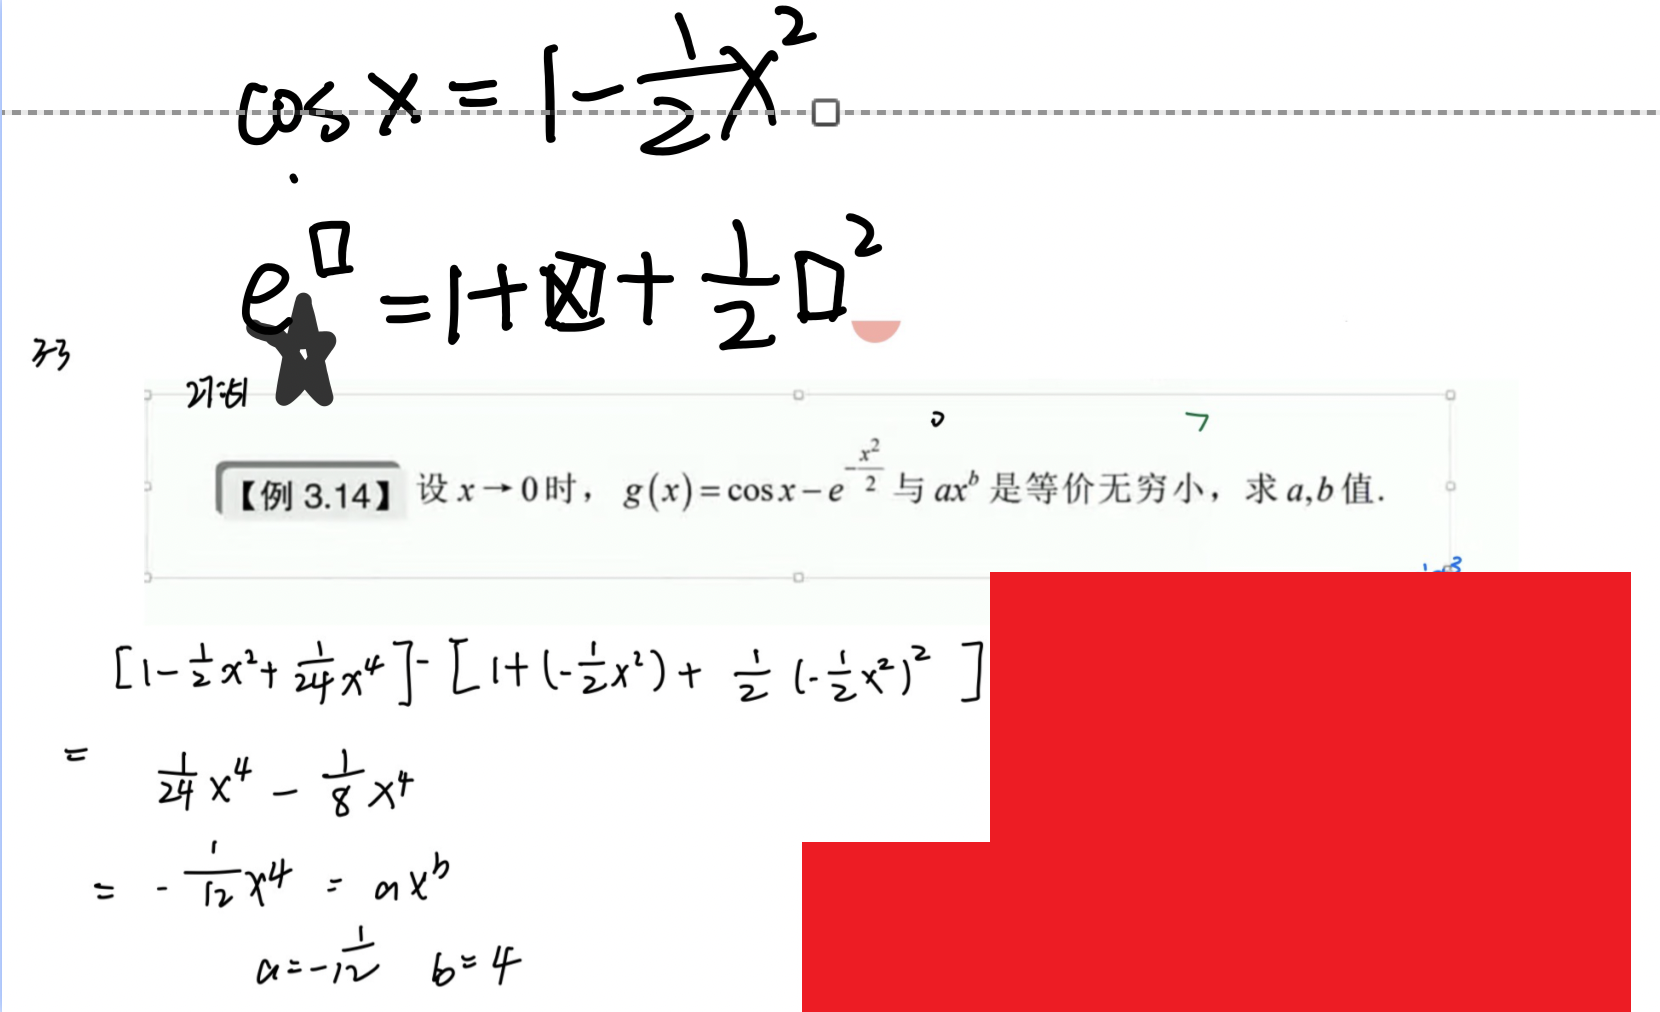 cos x = 1 - 1/2 x²
e^□ = 1 + □ + 1/2 □²
3-3
27:51
【例 3.14】 设 x → 0 时，g(x) = cos x - e^(-x²/2) 与 ax^b 是等价无穷小，求 a,b 值.
[1 - 1/2 x² + 1/24 x⁴] - [1 + (-1/2 x²) + 1/2 (-1/2 x²)²]
= 1/24 x⁴ - 1/8 x⁴
= -1/12 x⁴ = ax^b
a = -1/12 b = 4